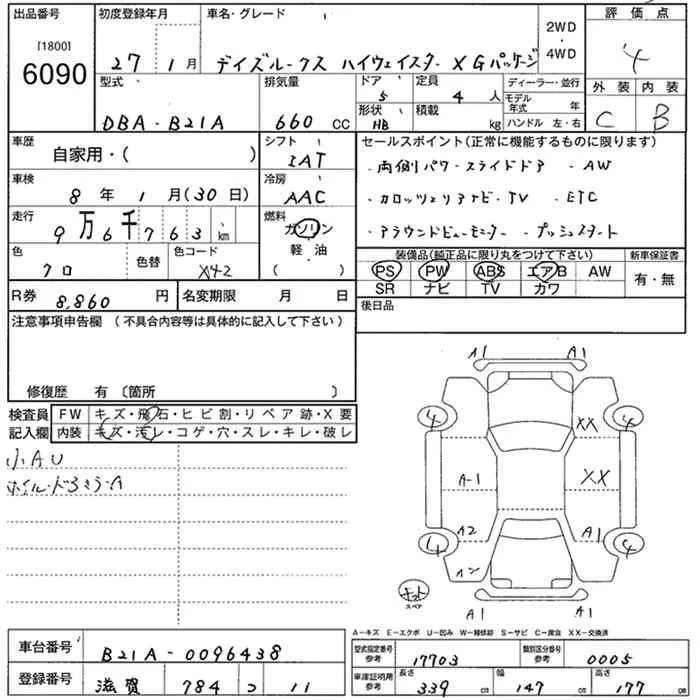 出品番号 初度登録年月 車名・グレード 2WD・4WD 評価点
[1800]
6090 27 1月 デイズルークス ハイウェイスター X Gパッケージ 4
型式 排気量 ドア 定員 ディーラー・並行 外装 内装
5 4 人 モデル年式 年
DBA-B21A 660 CC 形状 HB 積載 kg ハンドル 左・右 C B
車歴 シフト セールスポイント(正常に機能するものに限ります)
自家用・( ) IAT ・両側パワースライドドア ・AW
車検 冷房
8年 1月(30日) AAC ・カロッツェリアナビ・TV ・ETC
走行 燃料
9万6千763 km ガソリン ・アラウンドビューモニター ・プッシュスタート
色 色替 色コード 軽・油 装備品(純正品に限り丸をつけて下さい) 新車保証書
クロ X42 ( ) PS PW ABS エアB AW 有・無
SR ナビ TV カワ
R券 8,860 円 名変期限 月 日 後日品
注意事項申告欄 (不具合内容等は具体的に記入して下さい)
修復歴 有 〔箇所 〕
検査員 FW キズ・飛石・ヒビ割・リペア跡・X要
記入欄 内装 キズ・汚レ・コゲ・穴・スレ・キレ・破レ
小AU
A1 A1
4 XX 4
A-1 XX
A2 A1
4 4
スペア
A1 A1
A-キズ E-エクボ U-凹み W-補修跡 S-サビ C-腐食 XX-交換済
車台番号 B21A-0096438 型式指定番号 参考 17703 類別区分番号 参考 0005
登録番号 滋賀 784 コ 11 車庫証明用 参考 長さ 339 cm 幅 147 cm 高さ 177 cm